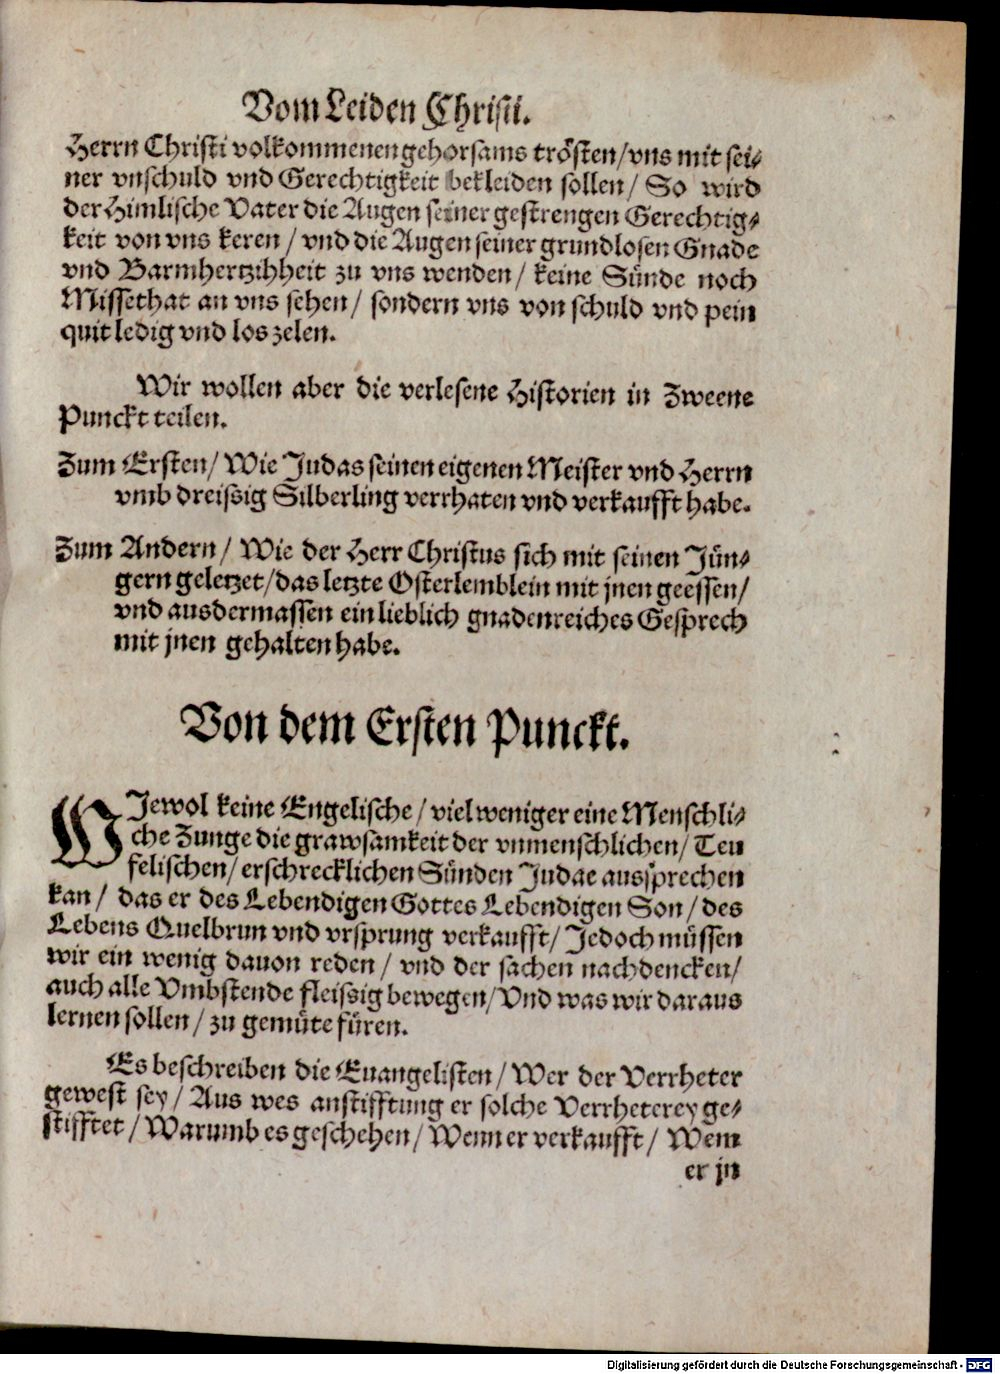 Vom Leiden Christi.
Herrn Christi volkommenen gehorsams trösten/vns mit sei-
ner vnschuld vnd Gerechtigkeit bekleiden sollen/ So wird
der Himlische Vater die Augen seiner gestrengen Gerechtig-
keit von vns keren/ vnd die Augen seiner grundlosen Gnade
vnd Barmhertzihheit zu vns wenden/ keine Sünde noch
Missethat an vns sehen/ sondern vns von schuld vnd pein
quit ledig vnd los zelen.
Wir wollen aber die verlesene Historien in Zweene
Punckt teilen.
Zum Ersten/ Wie Judas seinen eigenen Meister vnd Herrn
vmb dreissig Silberling verrhaten vnd verkaufft habe.
Zum Andern/ Wie der Herr Christus sich mit seinen Jün-
gern geletzet/das letzte Osterlemblein mit jnen geessen/
vnd ausdermassen ein lieblich gnadenreiches Gesprech
mit jnen gehalten habe.
Von dem Ersten Punckt.
WJewol keine Engelische/ viel weniger eine Menschli-
che Zunge die grawsamkeit der vnmenschlichen/ Teu
felischen/ erschrecklichen Sünden Judae aussprechen
kan/ das er des Lebendigen Gottes Lebendigen Son/ des
Lebens Quelbrun vnd vrsprung verkaufft/ Jedoch müssen
wir ein wenig dauon reden/ vnd der sachen nachdencken/
auch alle Vmbstende fleissig bewegen/ Vnd was wir daraus
lernen sollen/ zu gemüte füren.
Es beschreiben die Euangelisten/ Wer der Verrheter
gewest sey/ Aus wes anstifftung er solche Verrheterey ge-
stifftet/ Warumb es geschehen/ Wenn er verkaufft/ Wem
er jn
Digitalisierung gefördert durch die Deutsche Forschungsgemeinschaft - DFG